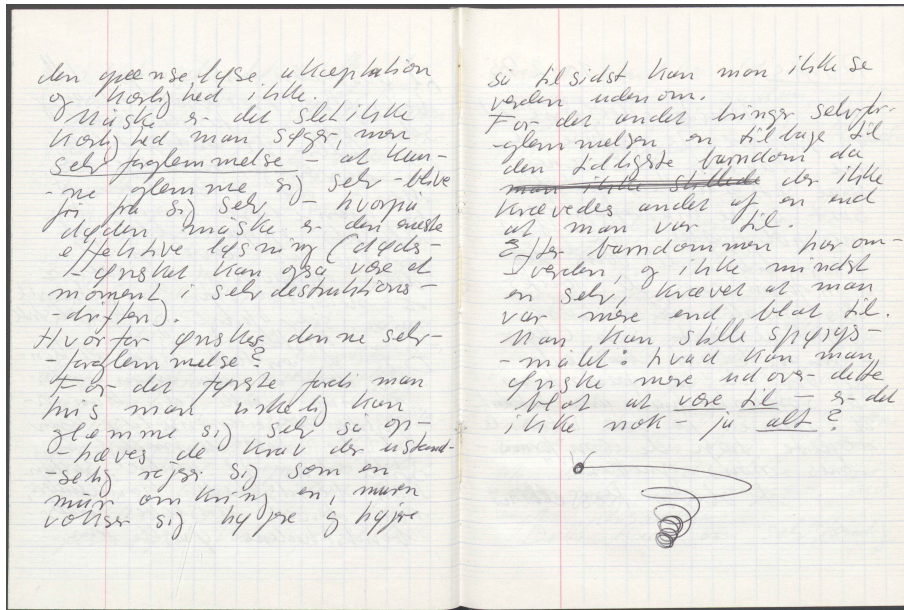 den grænseløse akceptation
og kærlighed ikke.
Måske er det slet ikke
kærlighed man søger, men
selvforglemmelse – at kun-
-ne glemme sig selv – blive
fri fra sig selv – hvorfra
døden måske er den eneste
effektive løsning (døds-
-ønsket kan også være et
moment i selvdestruktions-
-driften).
Hvorfor ønskes denne selv-
-forglemmelse?
For det første fordi man
hvis man virkelig kan
glemme sig selv så op-
-hæves de krav der ustand-
-selig rejser sig som en
mur omkring en, muren
vokser sig højere og højere
så tilsidst kan man ikke se
verden udenom.
For det andet bringer selvfor-
-glemmelsen en tilbage til
den tidligste barndom da
man ikke stillede der ikke
krævedes andet af en end
at man var til.
Efter barndommen har om-
-verden, og ikke mindst
en selv, krævet at man
var mere end blot til.
Man kan stille spørgs-
-målet: hvad kan man
ønske mere udover dette
blot at være til – er det
ikke nok – ja alt?